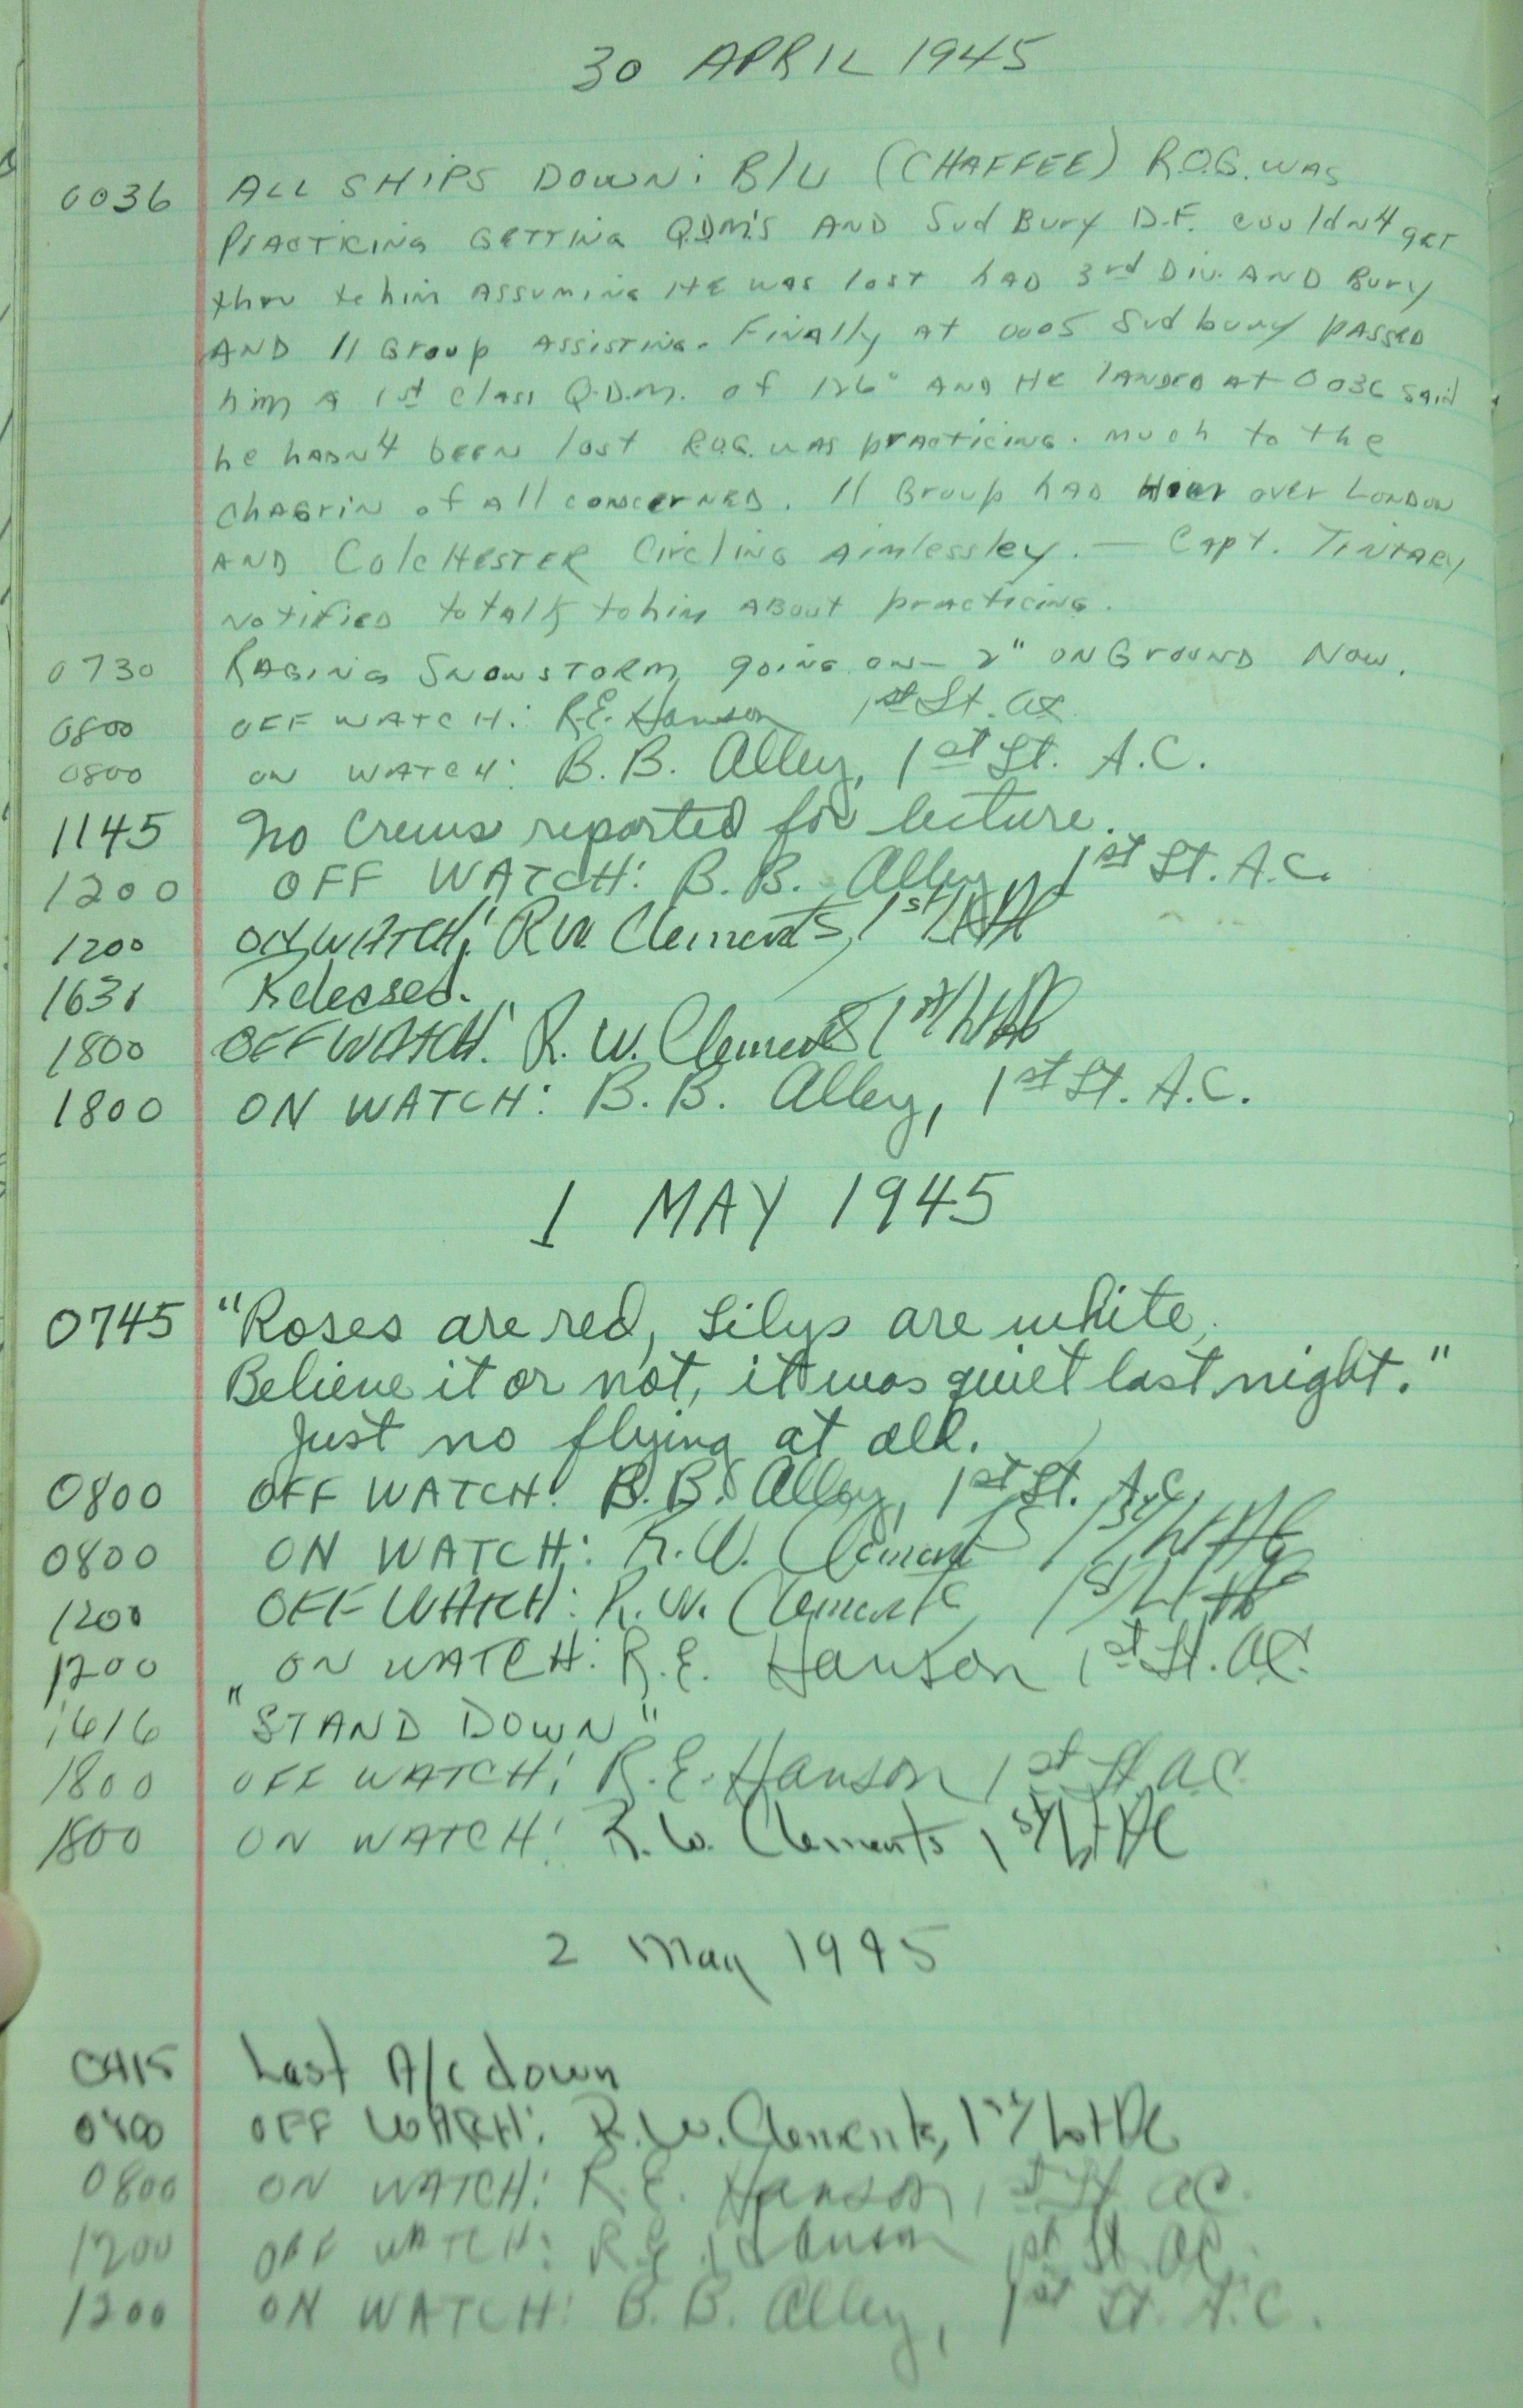 30 APRIL 1945
0036 ALL SHIPS DOWN: B/U (CHAFFEE) R.O.G. WAS
PRACTICING GETTING Q.D.M.'S AND SudBury D.F. couldn't get
thru to him ASSUMING HE was lost had 3rd Div. AND Bury
AND 11 Group ASSISTING. Finally at 0005 Sudbury PASSED
him a 1st Class Q.D.M. of 126° AND HE LANDED AT 0036 said
he hadn't been lost R.O.G. was practicing. Much to the
Chagrin of all concerned. 11 Group had over London
AND ColCHESTER Circling aimlessley. — Capt.
Notified to talk to him about practicing.
0730 RAGING SNOWSTORM going on — 2" ON GROUND NOW.
0800 OFF WATCH: R.E. Hanson 1st Lt. AC
0800 ON WATCH: B. B. Alley, 1st Lt. A.C.
1145 No Crews reported for lecture.
1200 OFF WATCH: B. B. Alley, 1st Lt. A.C.
1200 ON WATCH: R W Clements, 1st Lt AC
1631 Released.
1800 OFF WATCH: R. W. Clements 1st Lt AC
1800 ON WATCH: B. B. Alley, 1st Lt. A.C.
1 MAY 1945
0745 "Roses are red, Lilys are white,
Believe it or not, it was quiet last night."
Just no flying at all.
0800 OFF WATCH: B. B. Alley, 1st Lt. A.C.
0800 ON WATCH: R. W. Clements 1st Lt AC
1200 OFF WATCH: R. W. Clements 1st Lt AC
1200 ON WATCH: R. E. Hanson 1st Lt. AC.
1616 "STAND DOWN"
1800 OFF WATCH: R. E. Hanson 1st Lt AC.
1800 ON WATCH: R. W. Clements, 1st Lt AC
2 May 1945
0415 Last A/c down
0800 OFF WATCH: R. W. Clements, 1st Lt AC
0800 ON WATCH: R. E. Hanson, 1st Lt AC.
1200 OFF WATCH: R E Hanson 1st Lt AC.
1200 ON WATCH: B. B. Alley, 1st Lt. A.C.